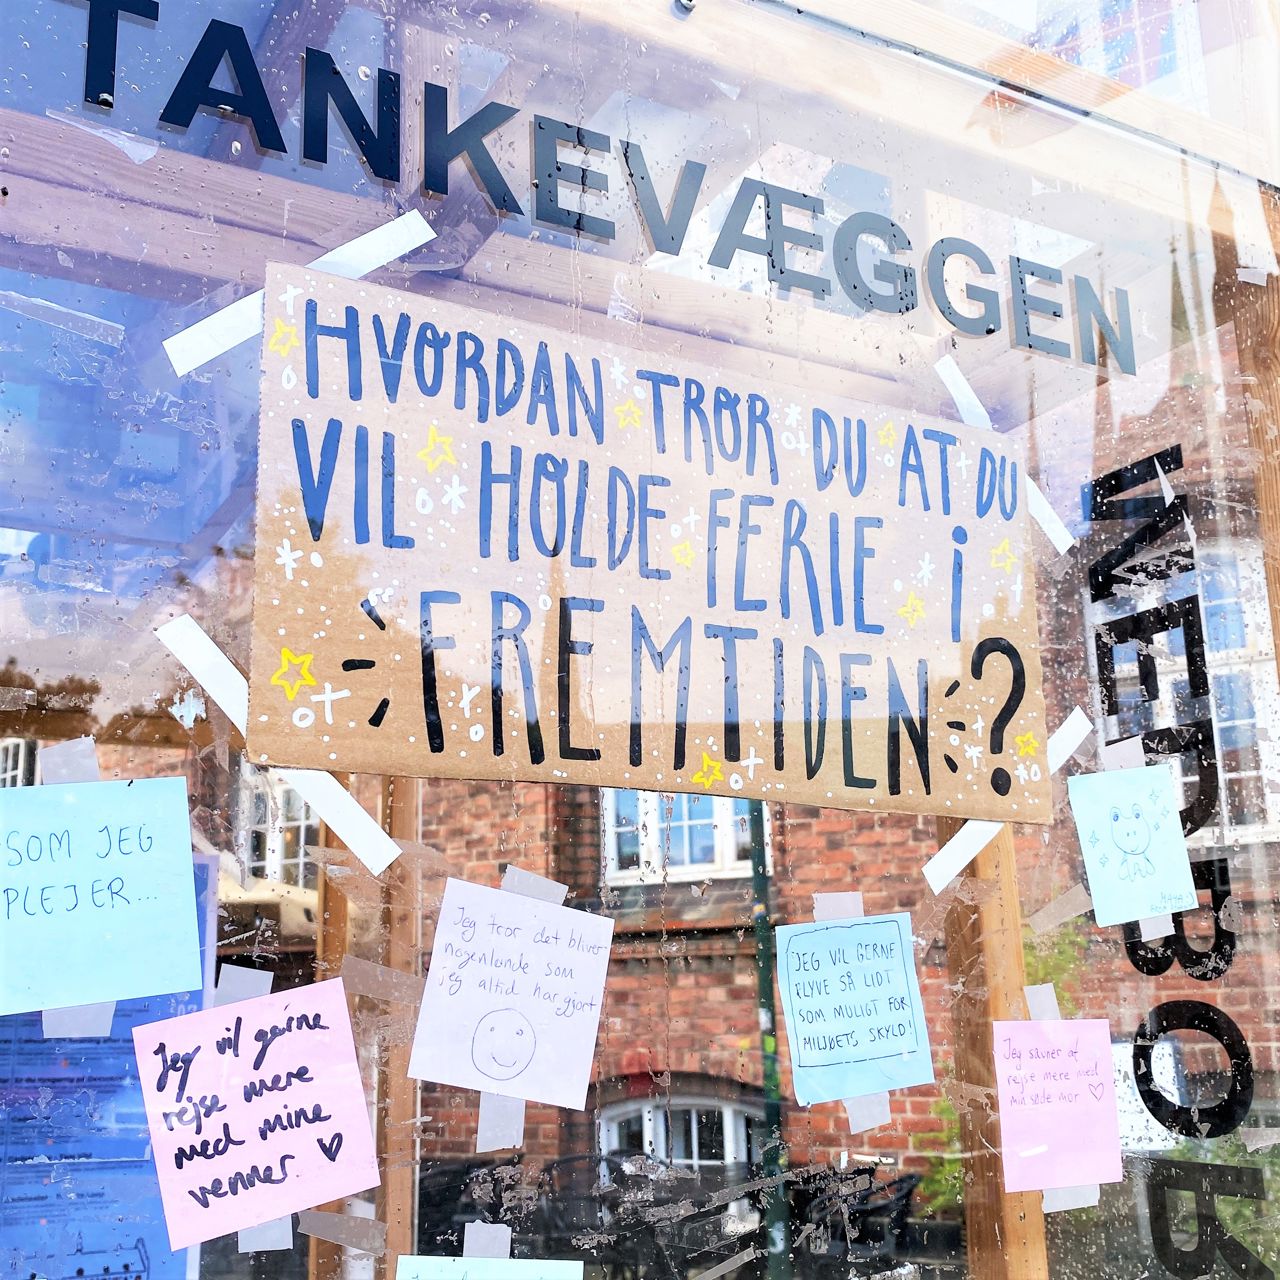 TANKEVÆGGEN
HVORDAN TROR DU AT DU
VIL HOLDE FERIE i
FREMTIDEN?
SOM JEG
PLEJER...
Jeg vil gerne
rejse mere
med mine
venner
Jeg tror det bliver
nogenlunde som
jeg altid har gjort
JEG VIL GERNE
FLYVE SÅ LIDT
SOM MULIGT FOR
MILJØETS SKYLD!
Jeg savner at
rejse mere med
min søde mor